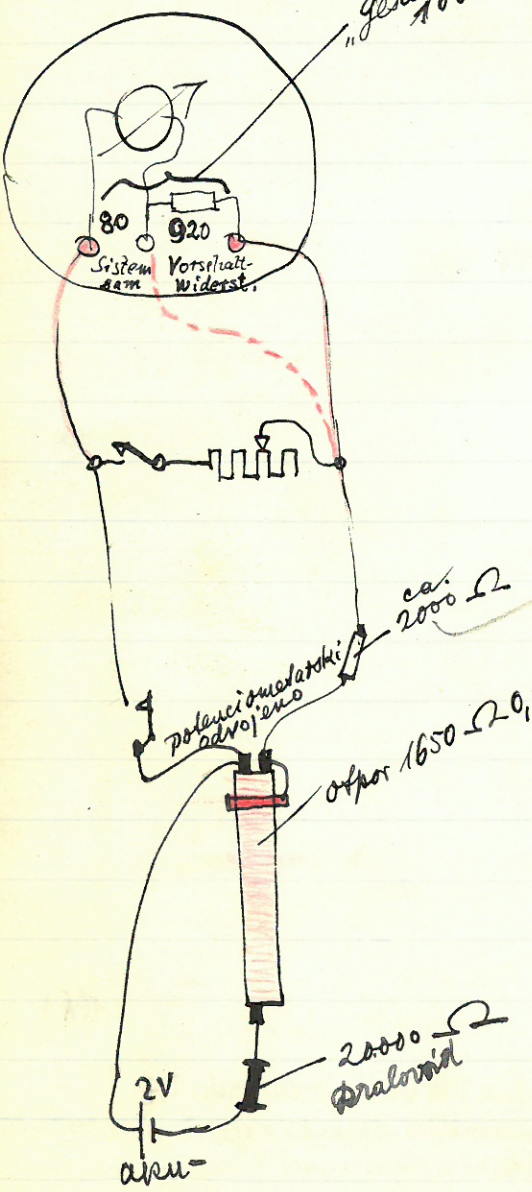 80 920
Sistem Vorschalt-
sam widerst.
ca.
2000 Ω
potenciometarski
odvojeno
otpor 1650 Ω 0,
20.000 Ω
Dralowid
2V
aku-